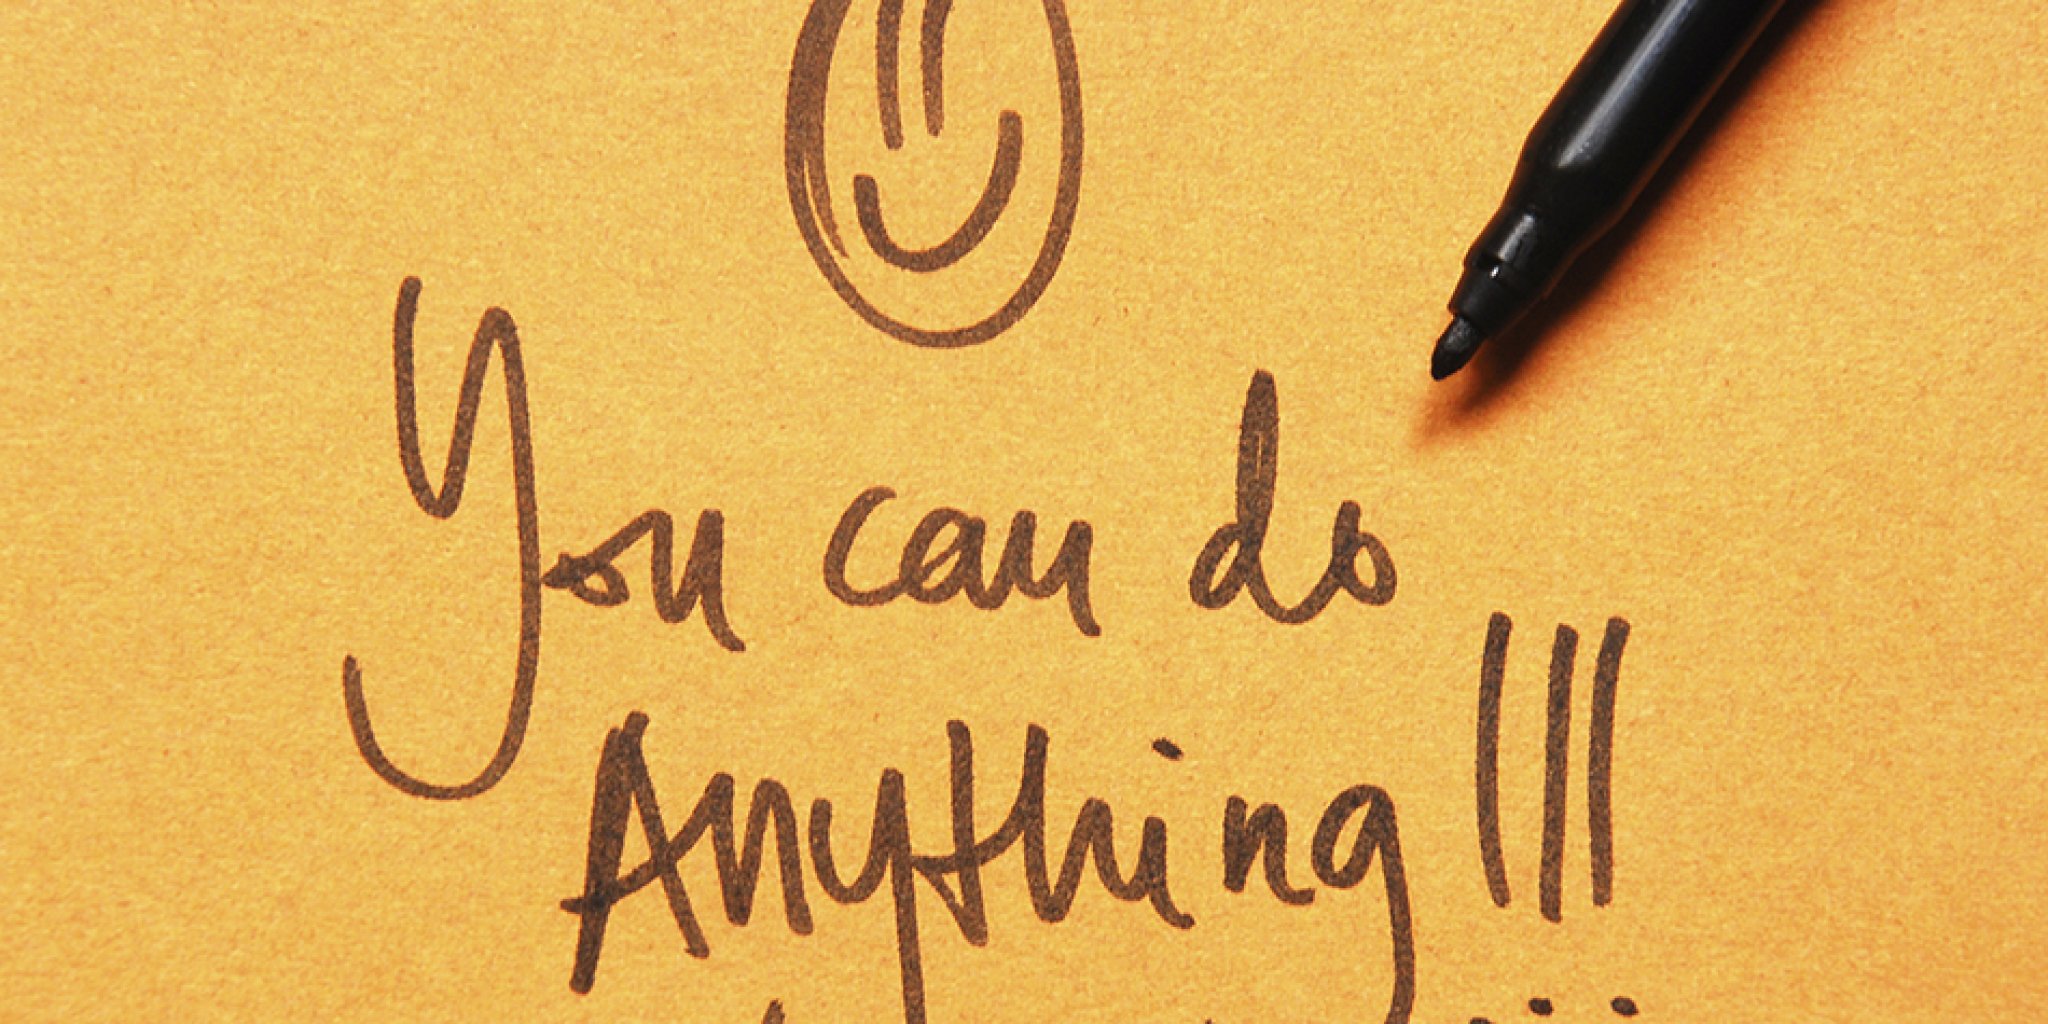 You can do
Anything!!!